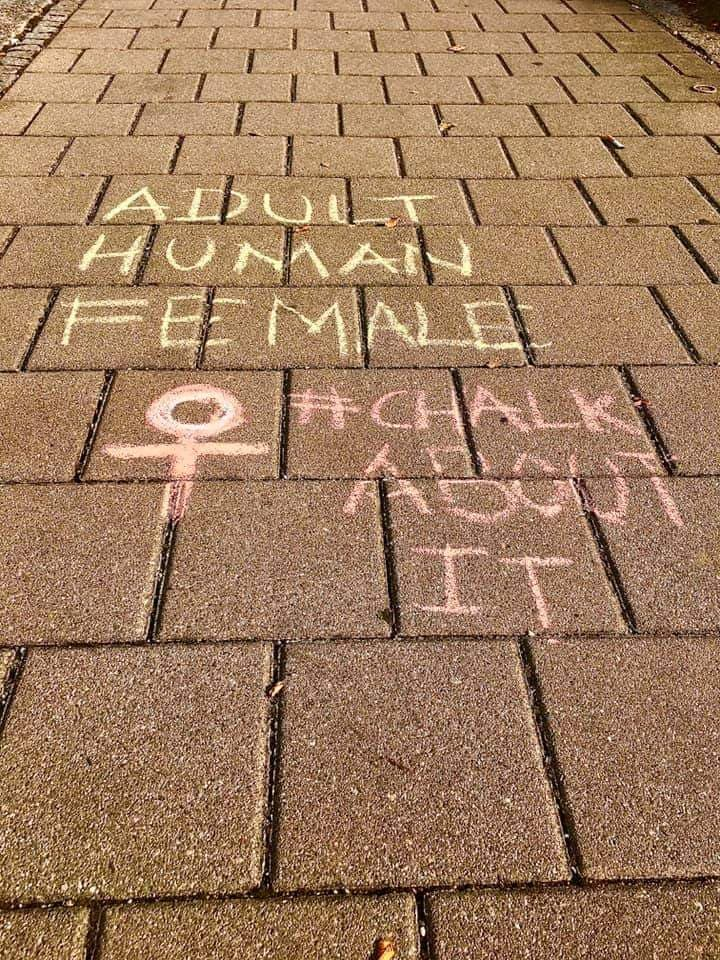 ADULT
HUMAN
FEMALE
#CHALK
ABOUT
IT